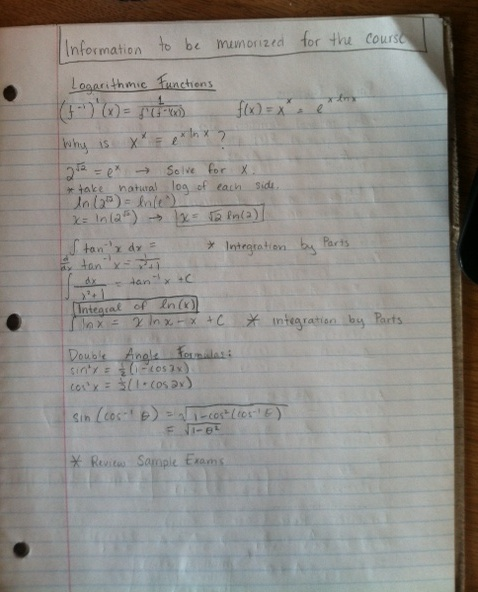 Information to be memorized for the course
Logarithmic Functions
(f⁻¹)'(x) = 1/f'(f⁻¹(x))    f(x) = xˣ = e^(x ln x)
Why is xˣ = e^(x ln x) ?
2^√2 = eˣ → Solve for x.
* take natural log of each side.
ln(2^√2) = ln(eˣ)
x = ln(2^√2) → x = √2 ln(2)
∫ tan⁻¹x dx =    * Integration by Parts
d/dx tan⁻¹x = 1/(x²+1)
∫ dx/(x²+1) = tan⁻¹x + C
Integral of ln(x)
∫ ln x = x ln x - x + C  * integration by Parts
Double Angle Formulas:
sin²x = ½(1-cos2x)
cos²x = ½(1+cos2x)
sin(cos⁻¹ θ) = √(1-cos²(cos⁻¹θ))
= √(1-θ²)
* Review Sample Exams